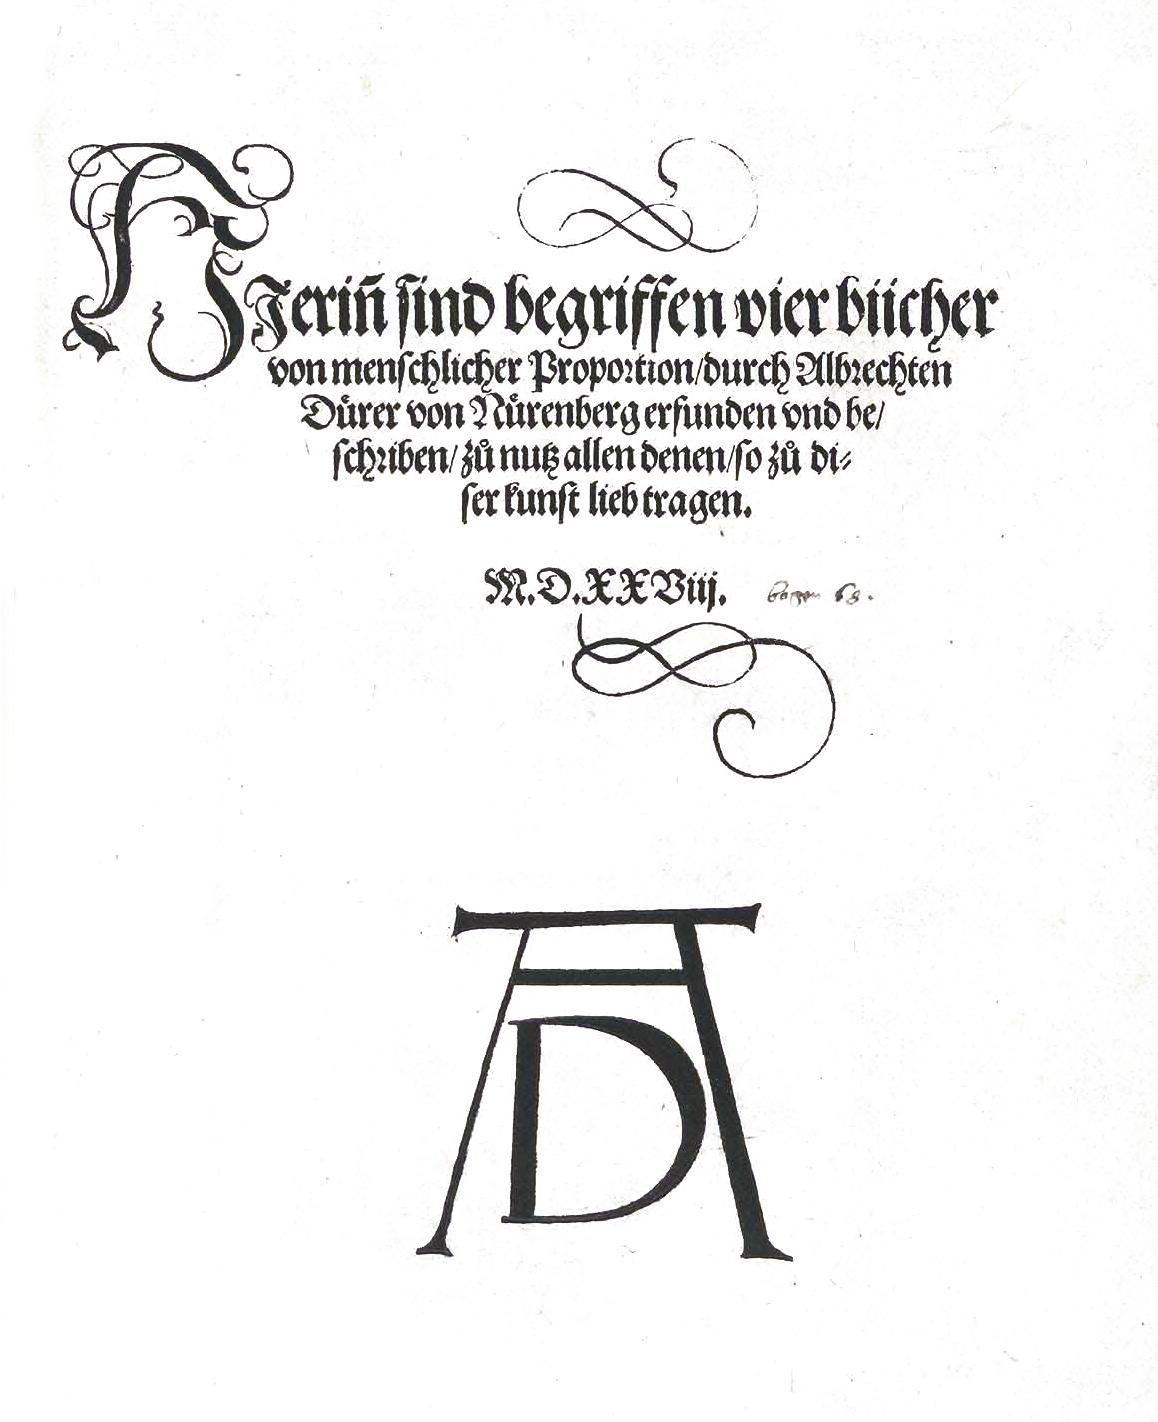 HJerin̄ sind begriffen vier bücher
von menschlicher Proportion/durch Albrechten
Důrer von Nůrenberg erfunden vnd be/
schriben/zů nutz allen denen/so zů di⸗
ser kunst lieb tragen.
M.D.XXViij. bogen 68.
AD